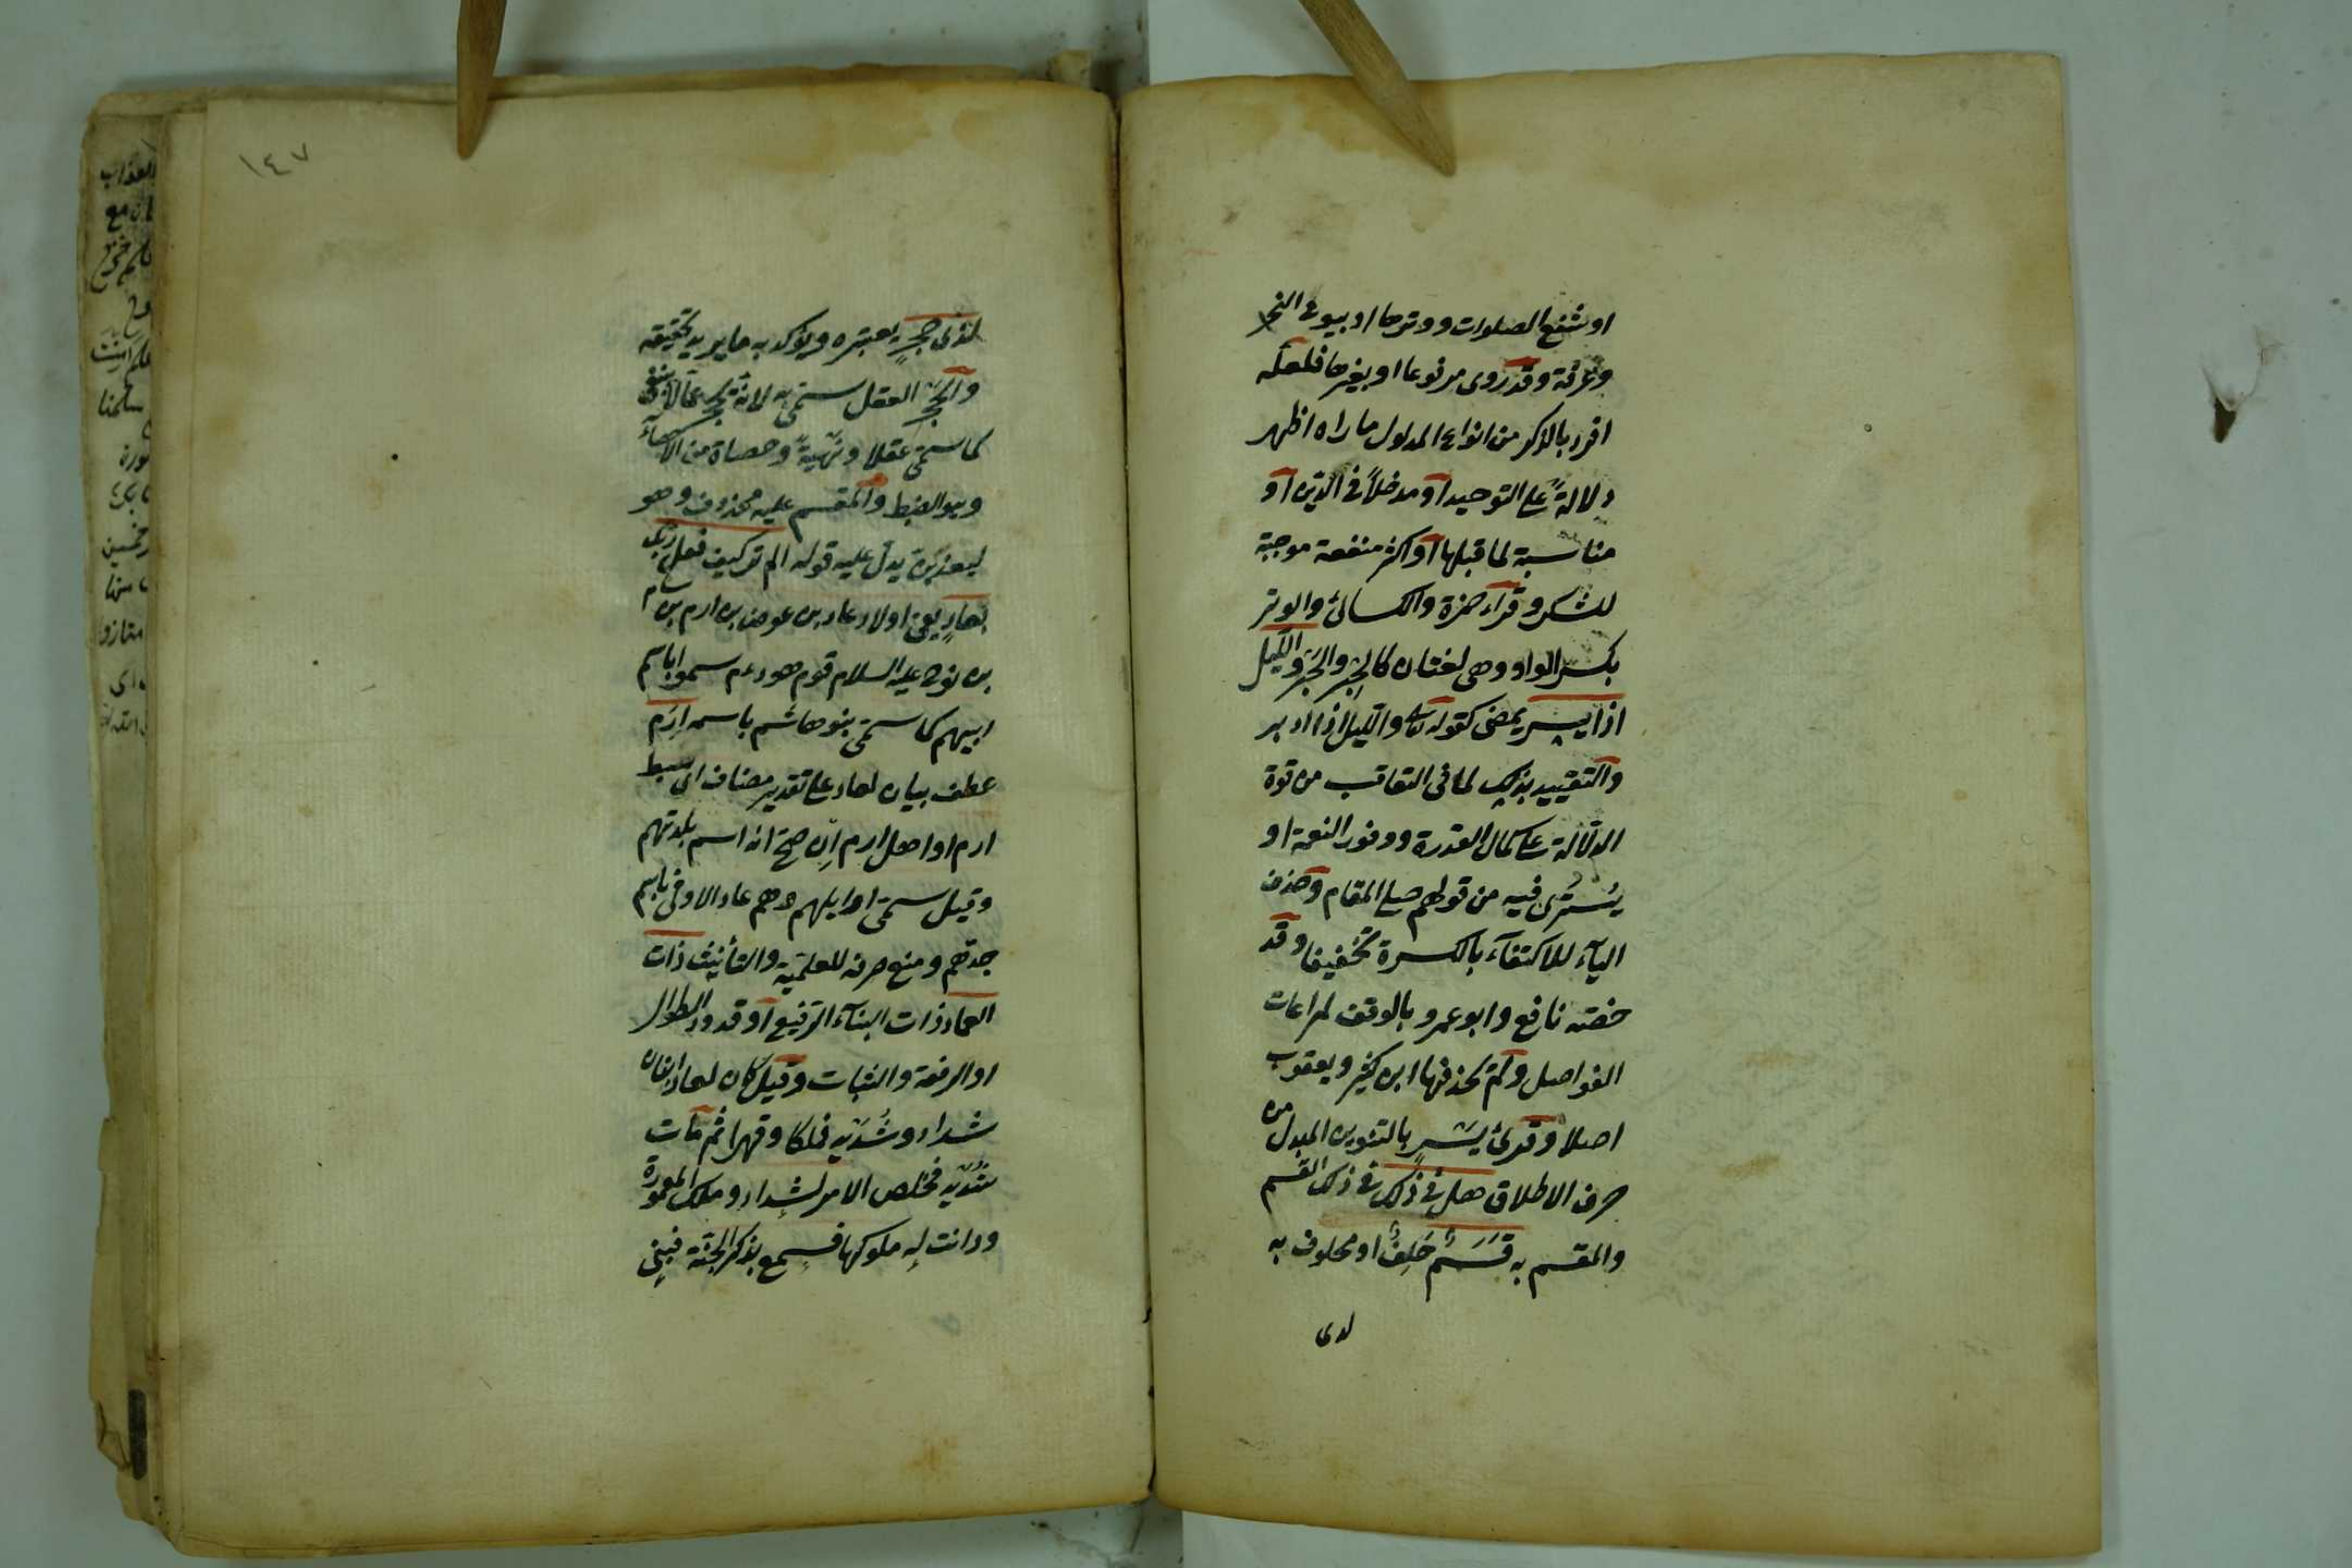 او شفع الصلوات ووترها او بيومى النحر
وعرفة وقد روى مرفوعا او بغيرها فلعله
افرد بالذكر من انواع المدلول ما راه اظهر
دلالةً على التوحيد او مدخلاً فى الدين او
مناسبة لما قبلها او اكثر منفعة موجبة
للشكر وقراء حمزة والكسائى والوتر
بكسر الواو وهى لغتان كالحِبر والحَبر والليل
اذا يسر يمضى كقوله تعا والليل اذا ادبر
والتقييد بذلك لما فى التعاقب من قوة
الدلالة على كمال القدرة ووفور النعمة او
يُسْرَى فيه من قولهم صلى المقام وحذف
اليآء للاكتفآء بالكسرة تخفيفا وقد
خصّه نافع وابو عمرو بالوقف لمراعات
الفواصل ولم يحذفها ابن كثير ويعقوب
اصلا وقرئ يَسْرٍ بالتنوين المبدل من
حرف الاطلاق هل فى ذلك فى ذلك القسم
والمقسم به قَسَمٌ حَلِفٌ او محلوف به
لذى
١٤٧
لذى حِجرٍ يعتبره ويؤكد به ما يريد تحقيقه
والحِجرُ العقل سمّى به لانه يحجر عمّا لا ينبغى
كما سمّى عقلا ونُهيةً وحصاة من الاحصآء
وهو الضبط والمقسم عليه محذوف وهو
ليعذبن يدل عليه قوله الم تر كيف فعل ربك
بعادٍ يعنى اولاد عاد بن عوص بن ارم بن سام
بن نوح عليه السلام قوم هود عم سموا باسم
ابيهم كما سمّى بنو هاشم باسمه اِرَم
عطف بيان لعاد على تقدير مضاف اى سبط
ارم او اهل ارم اِن صحّ انه اسم بلدتهم
وقيل سمّى اوايلهم وهم عاد الاولى باسم
جدهم ومنع صرفه للعلمية والتأنيث ذات
العماد ذات البنآء الرفيع او قدود الطوال
او الرفعة والثبات وقيل كان لعاد ابنان
شداد وشُديد فملكا وقهرا ثم مات
شُديد فخلص الامر لشداد وملك المعمورة
ودانت له ملوكها فسمع بذكر الجنة فبنى